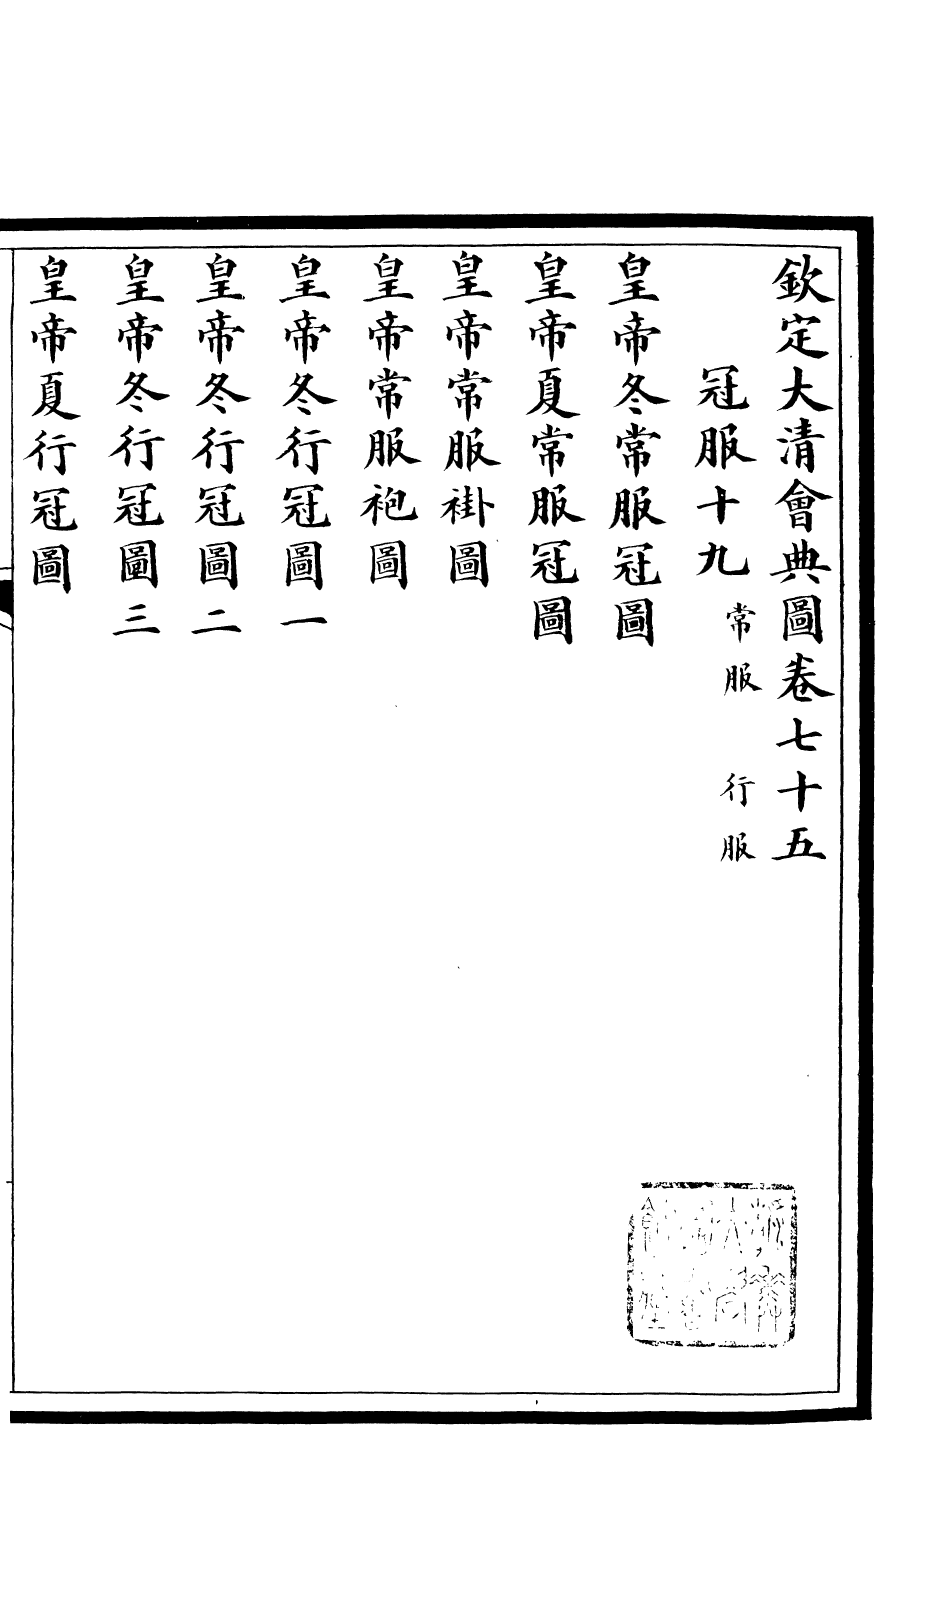 欽定大清會典圖卷七十五
冠服十九 常服 行服
皇帝冬常服冠圖
皇帝夏常服冠圖
皇帝常服褂圖
皇帝常服袍圖
皇帝冬行冠圖一
皇帝冬行冠圖二
皇帝冬行冠圖三
皇帝夏行冠圖